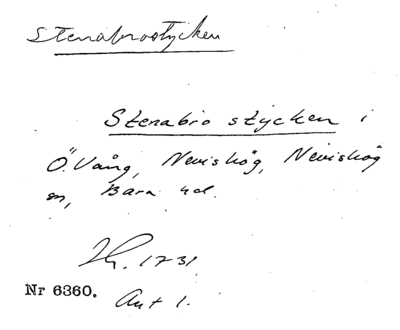 Stenabrostycken
Stenabro stycken i
Ö. Vång, Nevishög, Nevishög
sn, Bara hd.
1731
Nr 6360. Akt 1.